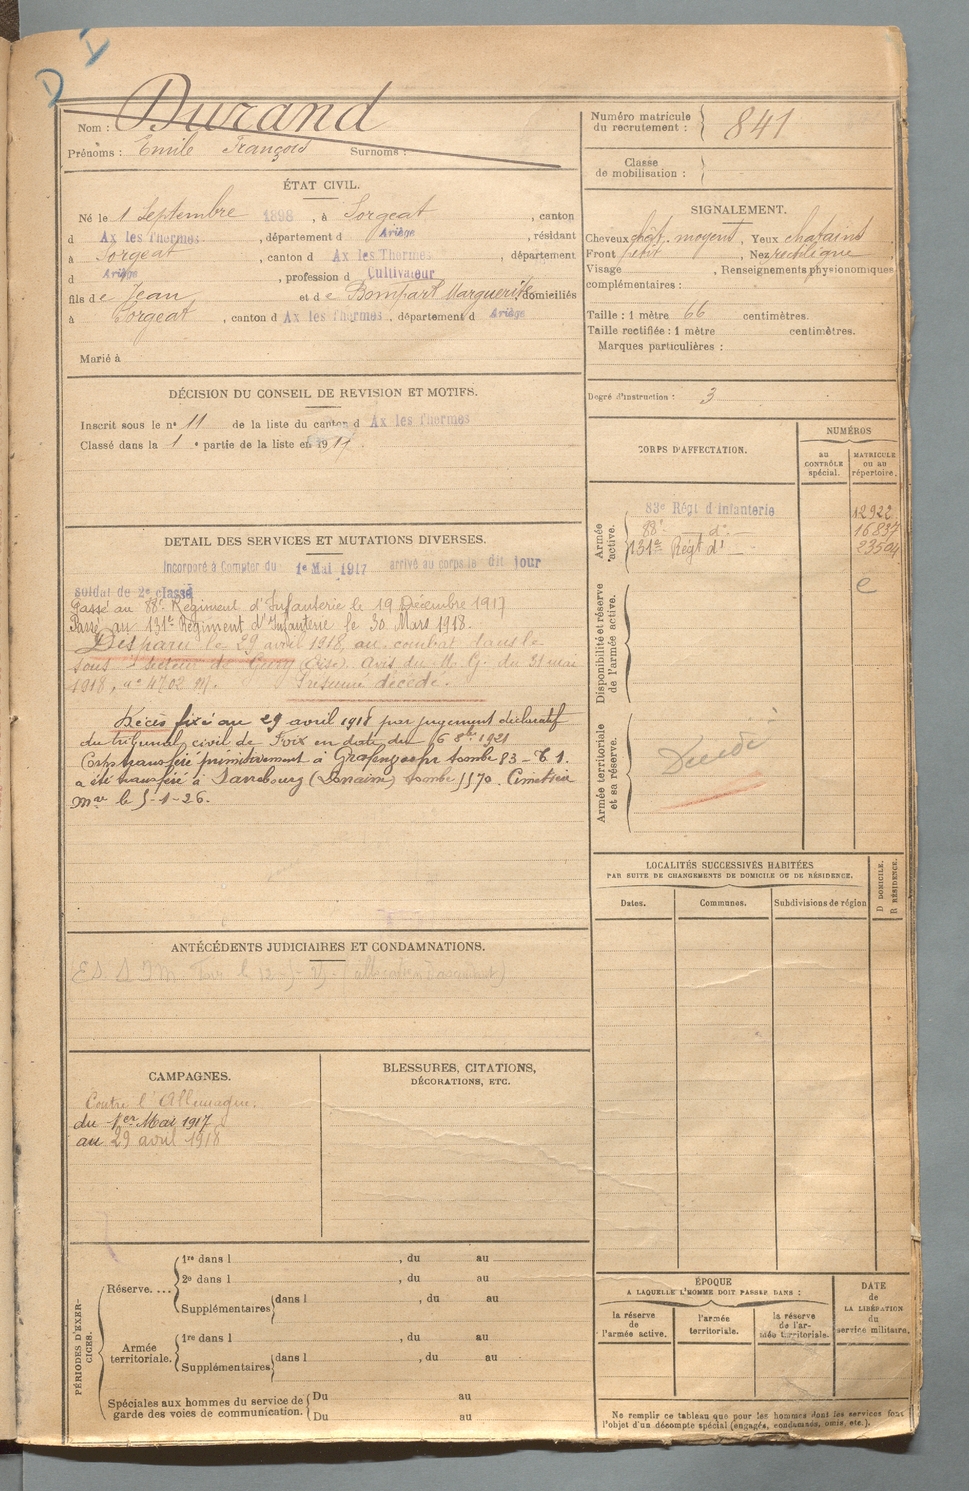 D I
Nom : Durand
Prénoms : Emile François Surnoms :
Numéro matricule
du recrutement : 841
Classe
de mobilisation :
ÉTAT CIVIL.
Né le 1 Septembre 1898, à Sorgeat, canton
d Ax les Thermes, département d Ariège, résidant
à Sorgeat, canton d Ax les Thermes, département
d Ariège, profession d Cultivateur
fils de Jean et de Bompart Marguerite domiciliés
à Sorgeat, canton d Ax les Thermes, département d Ariège
Marié à
SIGNALEMENT.
Cheveux chât. moyens, Yeux chatains
Front petit, Nez rectiligne
Visage , Renseignements physionomiques
complémentaires :
Taille : 1 mètre 66 centimètres.
Taille rectifiée : 1 mètre centimètres.
Marques particulières :
Degré d'instruction : 3
DÉCISION DU CONSEIL DE REVISION ET MOTIFS.
Inscrit sous le n° 11 de la liste du canton d Ax les Thermes
Classé dans la 1e partie de la liste en 1917.
CORPS D'AFFECTATION.
NUMÉROS
au
CONTRÔLE
spécial.
MATRICULE
ou au
répertoire.
Armée
active.
83e Régt d'Infanterie 12922
88e — d° — 16837
131e Régt d° — 23504
e
Disponibilité et réserve
de l'armée active.
Armée territoriale
et sa réserve.
Décédé
DETAIL DES SERVICES ET MUTATIONS DIVERSES.
Incorporé à Compter du 1e Mai 1917 arrivé au corps le dit jour
soldat de 2e classe
Passé au 88e Régiment d'Infanterie le 19 Décembre 1917
Passé au 131e Régiment d'Infanterie le 30 Mars 1918.
Disparu le 29 avril 1918 au combat dans le
sous secteur de (Oise). Avis du M. G. du 31 mai
1918, n° 4702 M. Présumé décédé.
Décès fixé au 29 avril 1918 par jugement déclaratif
du tribunal civil de Foix en date du 6 8bre 1921
Corps transféré primitivement à tombe 83 -
a été transféré à Sarrebourg (Lorraine) tombe Cimetière
mre le 5-1-26.
LOCALITÉS SUCCESSIVES HABITÉES
PAR SUITE DE CHANGEMENTS DE DOMICILE OU DE RÉSIDENCE.
Dates. Communes. Subdivisions de région
D DOMICILE.
R RÉSIDENCE.
ANTÉCÉDENTS JUDICIAIRES ET CONDAMNATIONS.
CAMPAGNES.
Contre l'Allemagne.
du 1er Mai 1917
au 29 avril 1918
BLESSURES, CITATIONS,
DÉCORATIONS, ETC.
PÉRIODES D'EXER-
CICES.
Réserve. ...
1re dans l , du au
2e dans l , du au
Supplémentaires dans l , du au
Armée
territoriale.
1re dans l , du au
Supplémentaires dans l , du au
Spéciales aux hommes du service de
garde des voies de communication.
Du au
Du au
ÉPOQUE
A LAQUELLE L'HOMME DOIT PASSER DANS :
la réserve
de
l'armée active.
l'armée
territoriale.
la réserve
de l'ar-
mée territoriale.
DATE
de
LA LIBÉRATION
du
service militaire.
Ne remplir ce tableau que pour les hommes dont les services font
l'objet d'un décompte spécial (engagés, condamnés, omis, etc.).